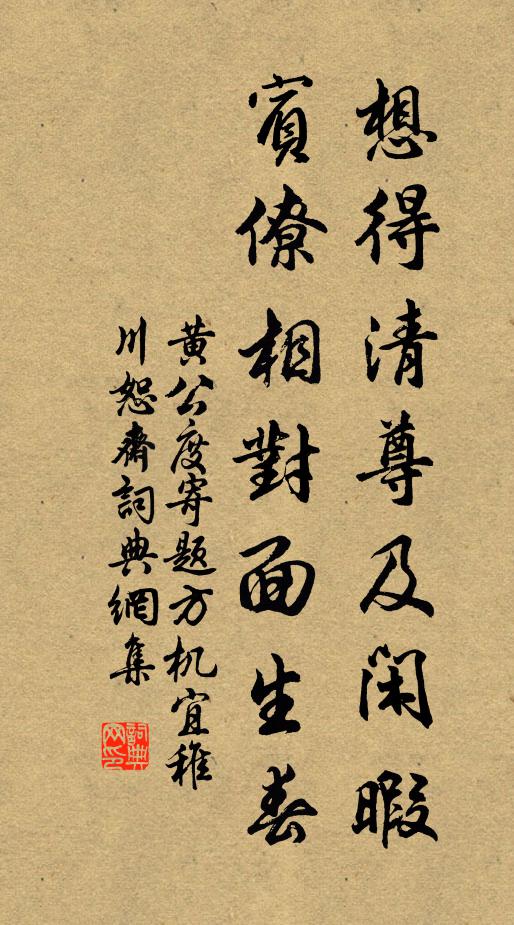 想得清尊及閑暇
賓僚相對面生春
黃公度寄題方机宜稚
川恕齋詞典網集
詞典
网印